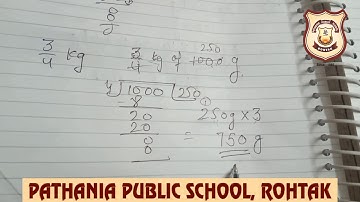 8
3/4 kg
3/4 kg of 1000 g
250
4)1000(250
-8
20
20
0
0
250g × 3
= 750 g
PATHANIA PUBLIC SCHOOL, ROHTAK